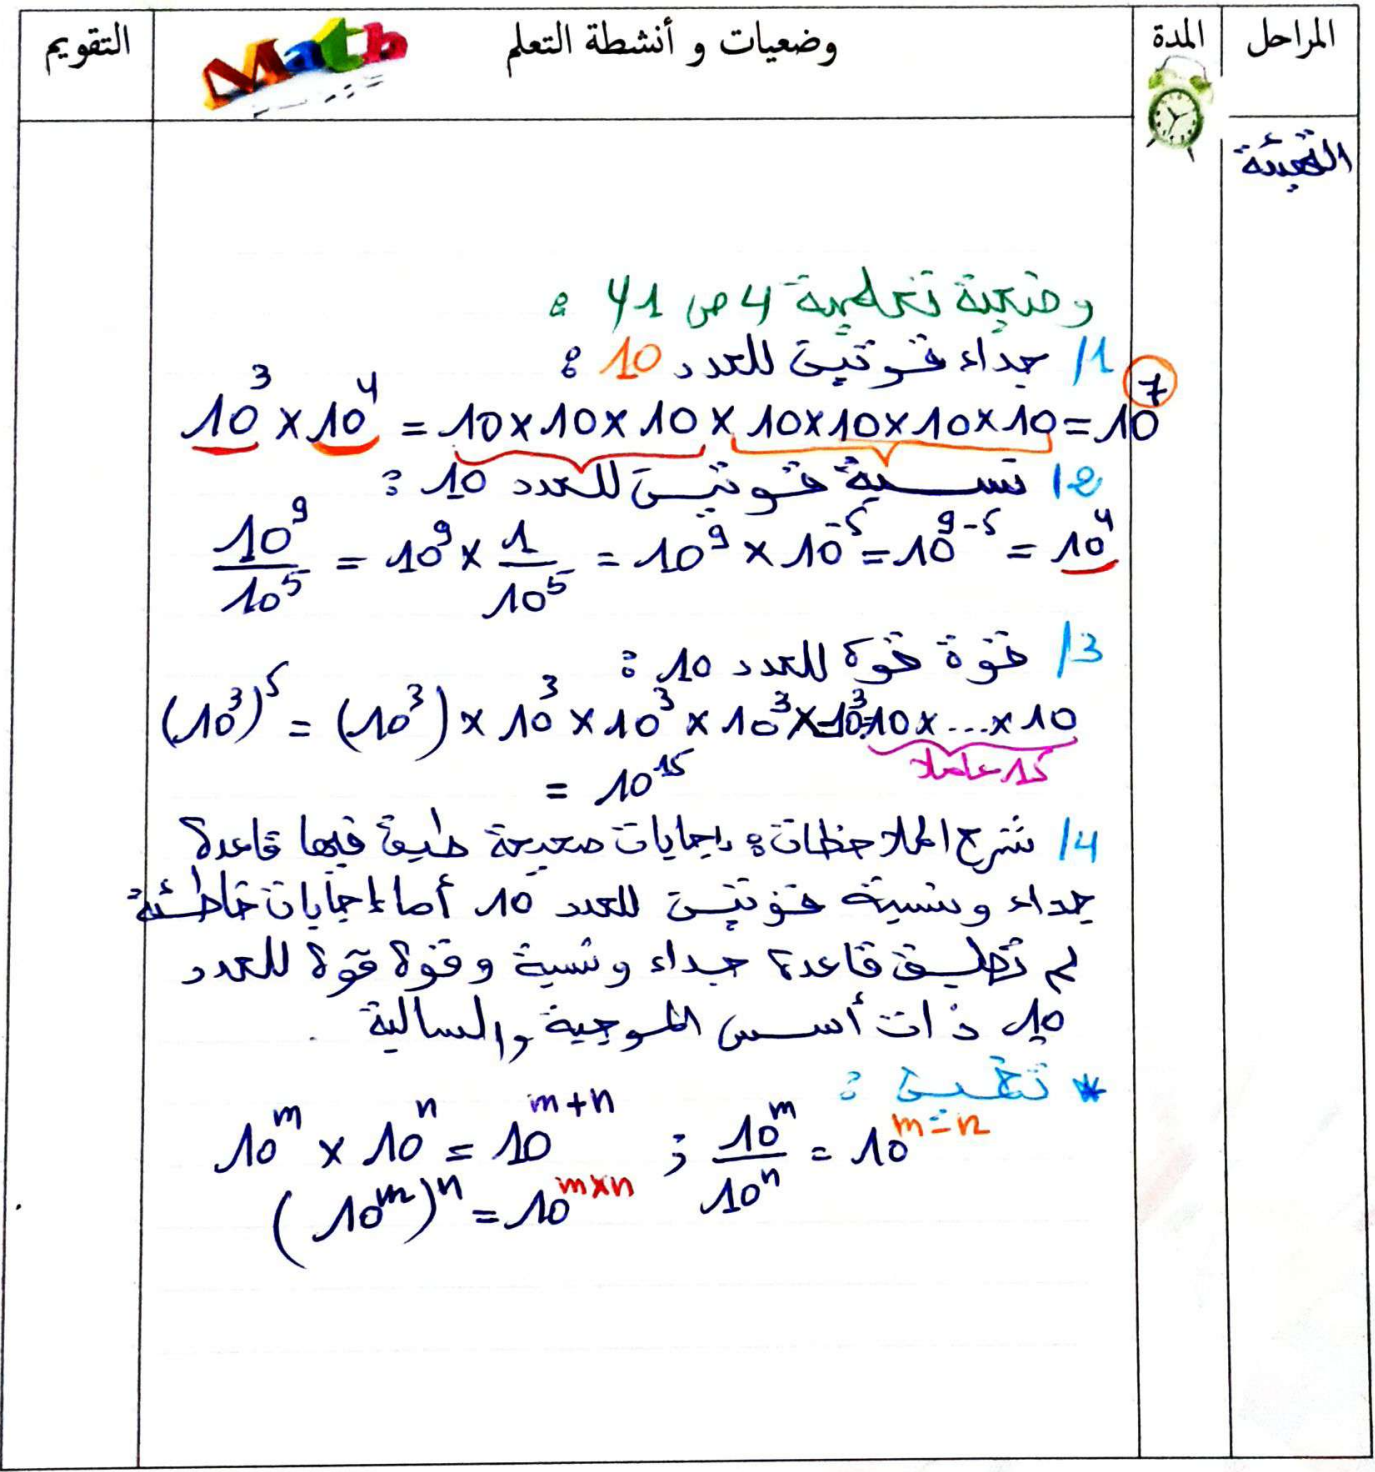 المراحل
المدة
وضعيات و أنشطة التعلم
Math
التقويم
التهيئة
وضعية تعلمية 4 ص 41 :
1/ جداء قوتين للعدد 10 :
10³ × 10⁴ = 10×10×10 × 10×10×10×10 = 10⁷
2/ نسبة قوتين للعدد 10 :
10⁹/10⁵ = 10⁹ × 1/10⁵ = 10⁹ × 10⁻⁵ = 10⁹⁻⁵ = 10⁴
3/ قوة قوة للعدد 10 :
(10³)⁵ = (10³) × 10³ × 10³ × 10³ × 10³ = 10 × ... × 10
15 عاملا
= 10¹⁵
4/ شرح الملاحظات : إجابات صحيحة طبق فيها قاعدة
جداء ونسبة قوتين للعدد 10 أما إجابات خاطئة
لم تطبق قاعدة جداء ونسبة وقوة قوة للعدد
10 ذات أسس الموجبة والسالبة .
* تطبيق :
10ᵐ × 10ⁿ = 10ᵐ⁺ⁿ ; 10ᵐ/10ⁿ = 10ᵐ⁻ⁿ
(10ᵐ)ⁿ = 10ᵐˣⁿ